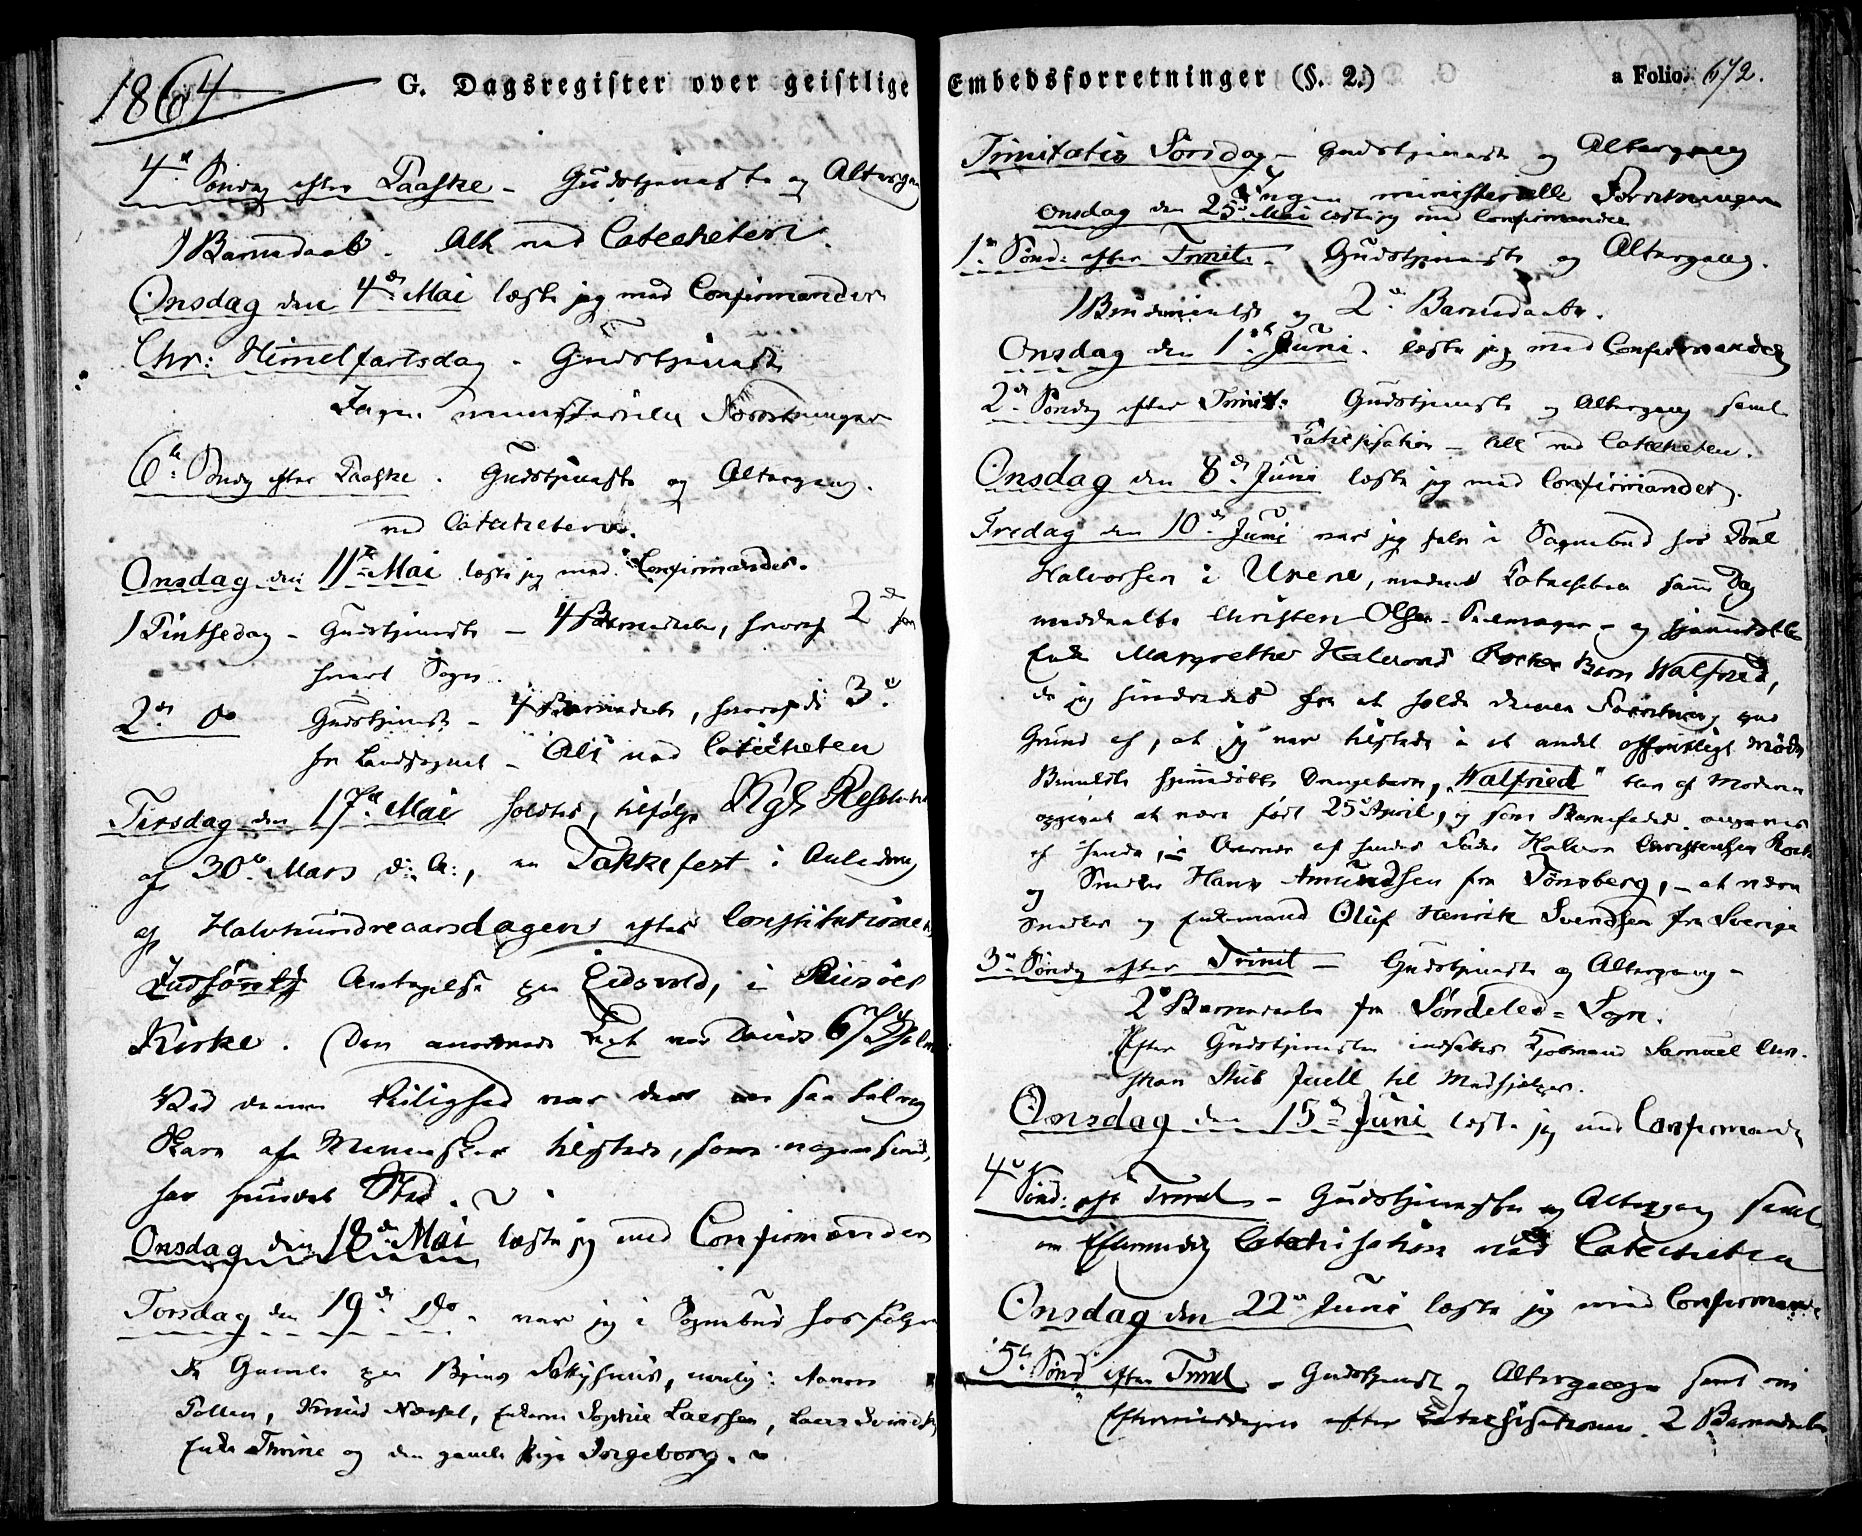 1864
G. Dagsregister over geistlige Embedsforretninger (§. 2.)
a Folio. 672.
4de Søndag efter Paaske - Gudstjeneste og Altergang
1 Barnedaab. Alt ved Catecheten.
Onsdag den 4de Mai læste jeg med Confirmander
Chr: Himmelfartsdag - Gudstjeneste
Ingen ministerielle Forretninger
6te Søndag efter Paaske. Gudstjeneste og Altergang.
ved Catecheten.
Onsdag den 11te Mai læste jeg med Confirmander.
1 Pintsedag - Gudstjeneste - 4 Barnedaabe, hvoraf 2de for
hvert Sogn.
2den do Gudstjeneste - 4 Barnedaabe, hvoraf de 3de
for Landsognet - Alt ved Catecheten
Tirsdag den 17de Mai holdtes, tilfølge Kgl. Resolution
af 30te Mars d: A:, en Takkefest i Anledning
af Halvhundreaarsdagen efter Constitutionens
Antagelse paa Eidsvold, i Risøers
Kirke. Den anordnede Text var Davids 67de Psalme
Ved denne Leilighed var der en saa talrig
Skare af Mennesker tilstede, som nogensinde
har fundet Sted.
Onsdag den 18de Mai læste jeg med Confirmanderne
Torsdag den 19de Do - var jeg i Sognebud hos følgende
Gamle paa Byens Fattighuus, nemlig: Anners
Pollen, Knud Næsset, Enkerne Sophie Larssen, Lars
Enke Thrine og den gamle Pige Ingeborg.
Trinitatis Søndag - Gudstjeneste og Altergang
Ingen ministerielle Forretninger
Onsdag den 25de Mai læste jeg med Confirmander
1ste Sønd: efter Trinit. - Gudstjeneste og Altergang.
1 Brudevielse og 2de Barnedaabe.
Onsdag den 1ste Juni. læste jeg med Confirmander
2den Søndag efter Trinit: Gudstjeneste og Altergang samt
Catechisation - Alt ved Catecheten.
Onsdag den 8de Juni læste jeg med Confirmander.
Fredag den 10de Juni var jeg selv i Sognebud hos Poul
Halvorsen i Urene, medens Catecheten samme Dag
meddeelte Christen Olsen - og hjemmedøbte
Enke Margrethe Halvors Barn Walfried,
da jeg hindredes fra at holde denne Forretning paa
Grund af, at jeg var tilstede i et andet offentligt Møde
Bemeldte hjemmedøbte Drengebarn, "Walfried" blev af Moderen
opgivet at være født 25de April, og som Barnefader angaves
af hende, i Overvær af hendes Fader Halvor Christensen
og Smeden Hans Amundsen fra Tønsberg, - at være
Smeden og Enkemand Oluf Henrik Svendsen fra Sverige
3die Søndag efter Trinit - Gudstjeneste og Altergang -
2de Barnedaabe fra Søndeled = Sogn.
Efter Gudstjenesten indsattes Kjøbmand Samuel Chri-
stian Stub Juell til Medhjælper.
Onsdag den 15de Juni læste jeg med Confirmander
4de Sønd: eft Trinit - Gudstjeneste og Altergang samt
om Eftermiddag Catechisation ved Catecheten
Onsdag den 22de Juni læste jeg med Confirmander
5te Sønd efter Trinit - Gudstjeneste og Altergang samt om
Eftermiddagen efter Catechisationen 2 Barnedaabe